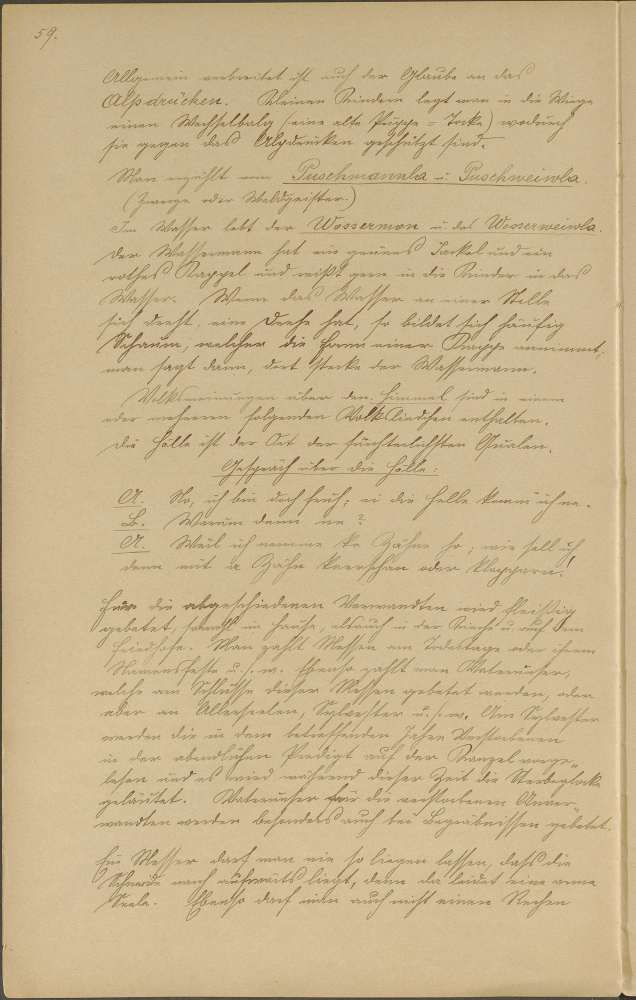 59.
Allgemein verbreitet ist auch der Glaube an das
Alpdrücken. Kleinen Kindern legt man in die Wiege
einen Wechselbalg (eine alte Puppe = Tocke) wodurch
sie gegen das Alpdrücken geschützt sind.
Man erzählt von Puschmannla u. Puschweiwla.
(Zwerge oder Waldgeister.)
Im Wasser lebt der Wossermon u. das Wosserweiwla.
Der Wassermann hat ein grünes Jackel und ein
rothes Kappel und zieht gern in die Kinder in das
Wasser. Wenn das Wasser an einer Stelle
sich dreht, eine Drehe hat, so bildet sich häufig
Schaum, welcher die Form einer Kappe annimmt;
man sagt dann, dort stecke der Wassermann.
Volksmeinungen über den Himmel sind in einem
oder mehreren folgenden Volksliedchen enthalten.
Die Hölle ist der Ort der fürchterlichsten Qualen.
Gespräch über die Hölle:
A. No, ich bin doch froh; ei die Helle kumm ich ne.
B. Warum denn ne?
A. Weil ich nemme ke Zähne ho; wie sell ich
denn mit a Zähn kneerschan oder klappern!
Für die abgeschiedenen Verwandten wird fleißig
gebetet, sowohl im Hause, als auch in der Kirche u. auf dem
Friedhofe. Man zahlt Messen am Todestage oder ihrem
Namensfeste u. s. w. Ebenso zahlt man Vaterunser,
welche am Schlusse dieser Messen gebetet werden, oder
aber an Allerseelen, Sylvester u. s. w. Am Sylvester
werden die in dem betreffenden Jahre Verstorbenen
in der abendlichen Predigt auf der Kanzel vorge-
lesen und es wird während dieser Zeit die Sterbeglocke
geläutet. Vaterunser für die verstorbenen Anver-
wandten werden besonders auch bei Begräbnissen gebetet.
Ein Messer darf man nie so liegen lassen, dass die
Schneide nach aufwärts liegt, denn da leidet eine arme
Seele. Ebenso darf man auch nicht einen Rechen